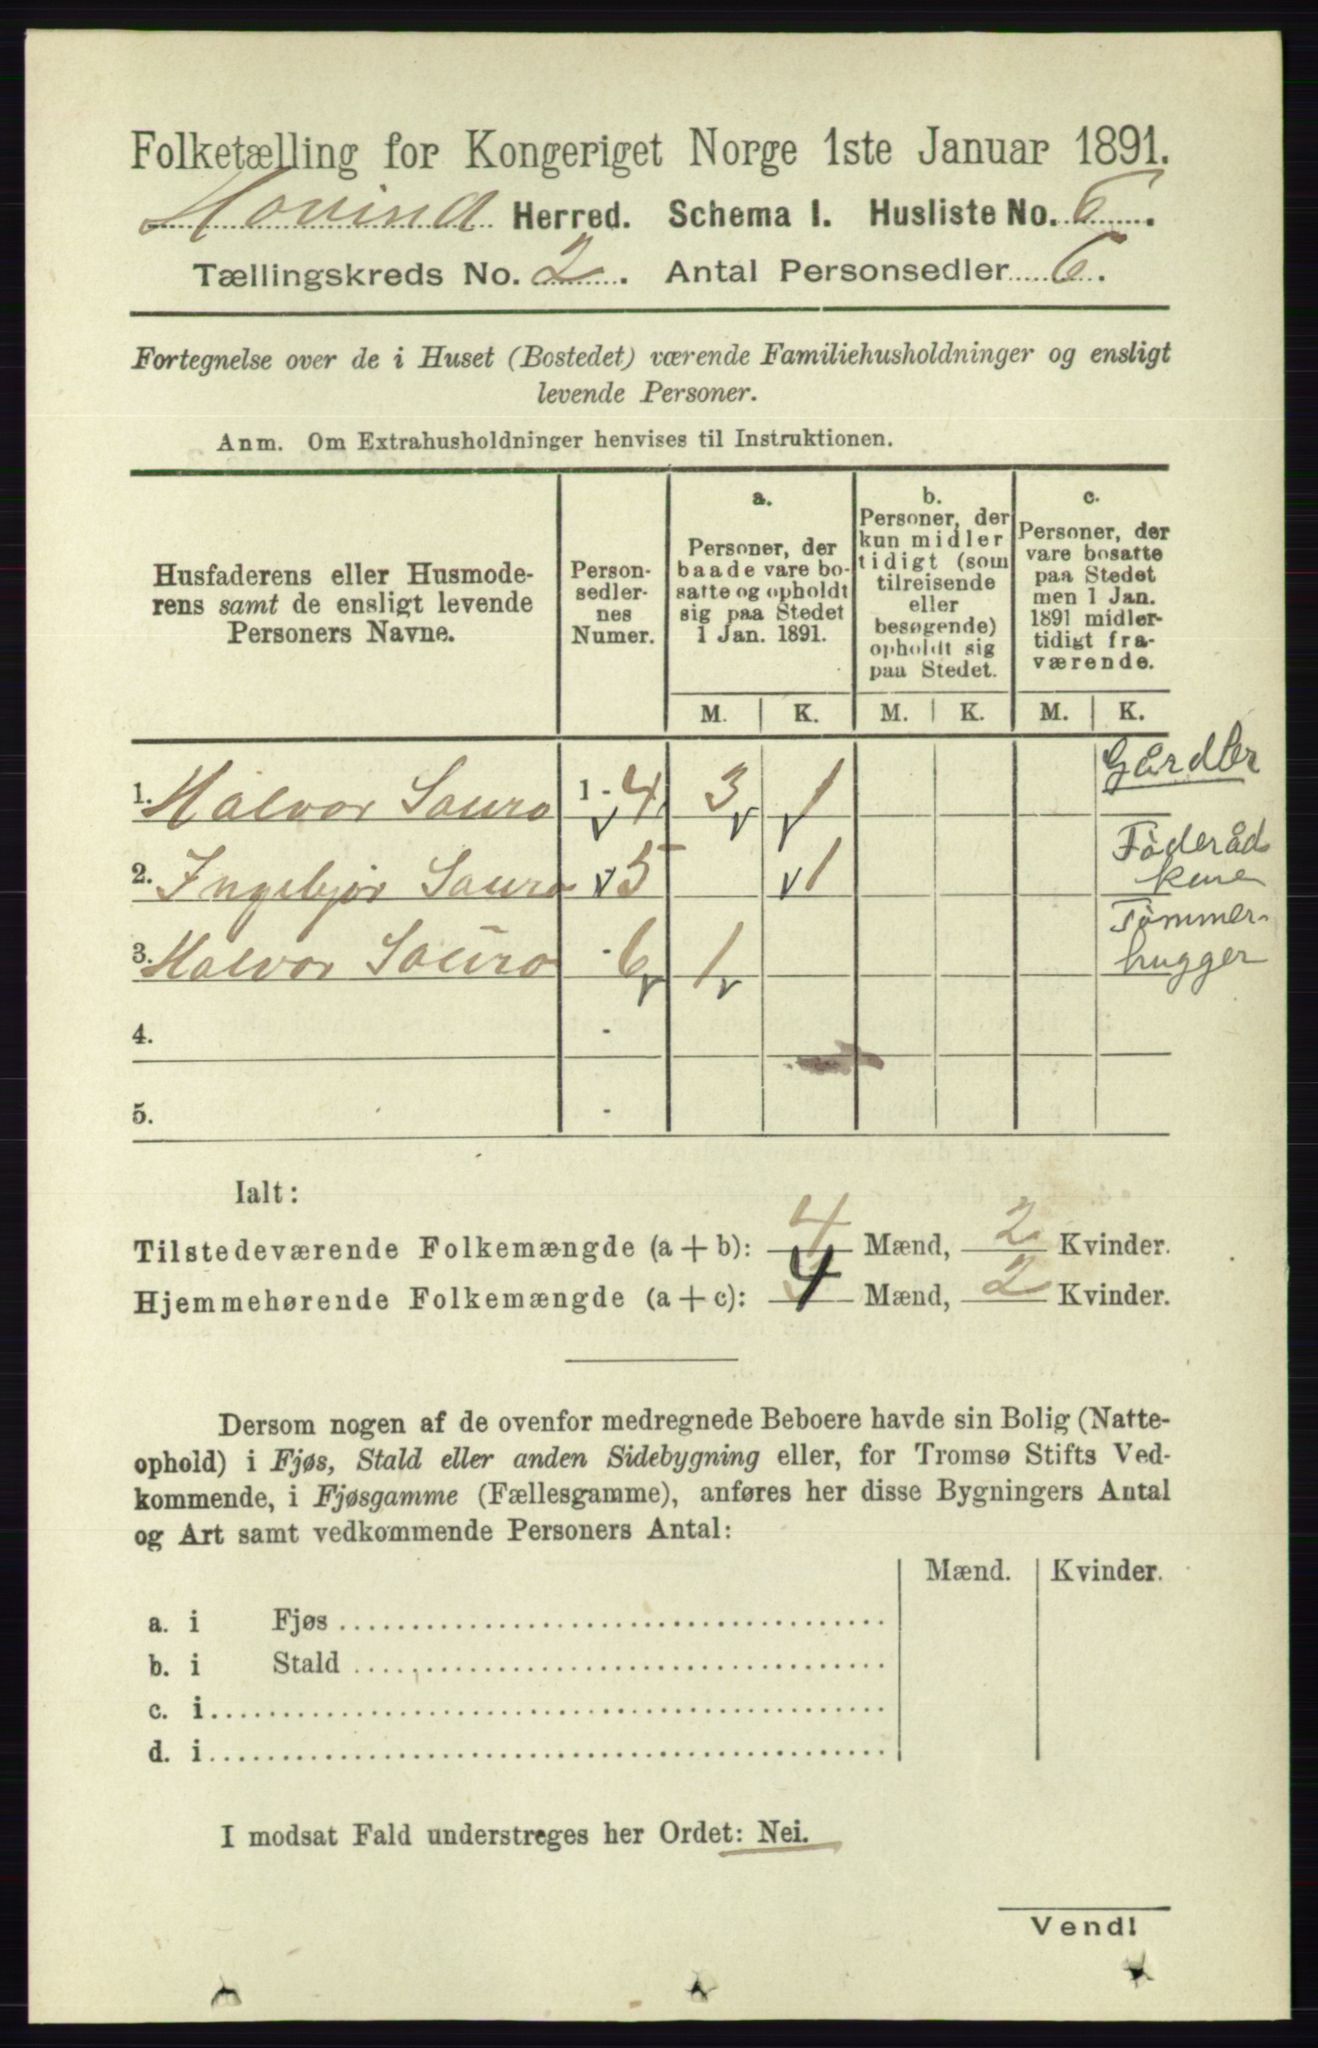 Folketælling for Kongeriget Norge 1ste Januar 1891.
Hovind Herred. Schema I. Husliste No. 6.
Tællingskreds No. 2. Antal Personsedler 6.
Fortegnelse over de i Huset (Bostedet) værende Familiehusholdninger og ensligt
levende Personer.
Anm. Om Extrahusholdninger henvises til Instruktionen.
Husfaderens eller Husmode-
rens samt de ensligt levende
Personers Navne.
Person-
sedler-
nes
Numer.
a.
Personer, der
baade vare bo-
satte og opholdt
sig paa Stedet
1 Jan. 1891.
b.
Personer, der
kun midler
tidigt (som
tilreisende
eller
besøgende)
opholdt sig
paa Stedet.
c.
Personer, der
vare bosatte
paa Stedet
men 1 Jan.
1891 midler-
tidigt fra-
værende.
M. K. M. K. M. K.
1. Halvor Sauro 1 - 4 3 1 Gårdbr
2. Ingebjør Sauro 5 1 Föderåd
kone
3. Halvor Sauro - 6 1 Tömmer-
hugger
4. -
5. -
Ialt:
Tilstedeværende Folkemængde (a + b): 4 Mænd, 2 Kvinder.
Hjemmehørende Folkemængde (a + c): 4 Mænd, 2 Kvinder.
Dersom nogen af de ovenfor medregnede Beboere havde sin Bolig (Natte-
ophold) i Fjøs, Stald eller anden Sidebygning eller, for Tromsø Stifts Ved-
kommende, i Fjøsgamme (Fællesgamme), anføres her disse Bygningers Antal
og Art samt vedkommende Personers Antal:
Mænd. Kvinder.
a. i Fjøs
b. i Stald
c. i
d. i
I modsat Fald understreges her Ordet: Nei.
Vend!